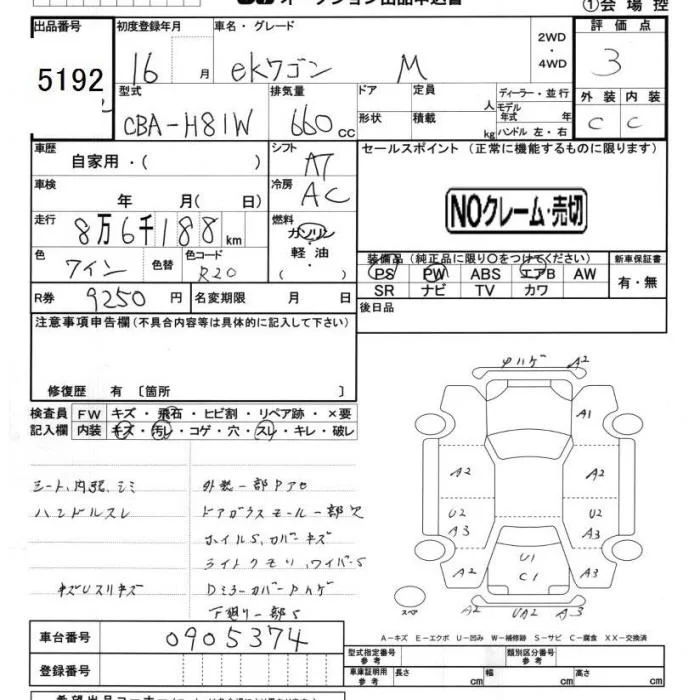 オークション出品申込書
①会場控
出品番号 初度登録年月 車名・グレード 2WD ・ 4WD 評価点
5192 16 月 ekワゴン M 3
型式 排気量 ドア 定員 人 ディーラー・並行 外装 内装
CBA-H81W 660 cc 形状 積載 kg モデル年式 年 ハンドル 左・右 C C
車歴 自家用・( ) シフト AT セールスポイント (正常に機能するものに限ります)
車検 年 月( 日) 冷房 AC
NOクレーム・売切
走行 8万6千188 km 燃料 ガソリン ・ 軽油 ・
色 ワイン 色替 色コード R20
装備品 (純正品に限り○をつけてください) 新車保証書
PS PW ABS エアB AW 有・無
SR ナビ TV カワ
R券 9250 円 名変期限 月 日 後日品
注意事項申告欄 (不具合内容等は具体的に記入して下さい)
修復歴 有 [箇所 ]
検査員 FW キズ・飛石・ヒビ割・リペア跡・×要
記入欄 内装 キズ・汚レ・コゲ・穴・スレ・キレ・破レ
シート、内張、シミ 外装一部Pアセ
ハンドルスレ ドアガラスモール一部欠
ホイルS、カバーキズ
ライトクモリ、ワイパーS
キズUスリキズ DミラーカバーPハゲ
下廻り一部S
PハゲA2
A1
A2 A2
U2 U2
A3 A3
U1
C1
A2 A3
スペア A2 UA2 A3
A-キズ E-エクボ U-凹み W-補修跡 S-サビ C-腐食 XX-交換済
車台番号 0905374
型式指定番号 参考 類別区分番号 参考
登録番号 車庫証明用 参考 長さ cm 幅 cm 高さ cm